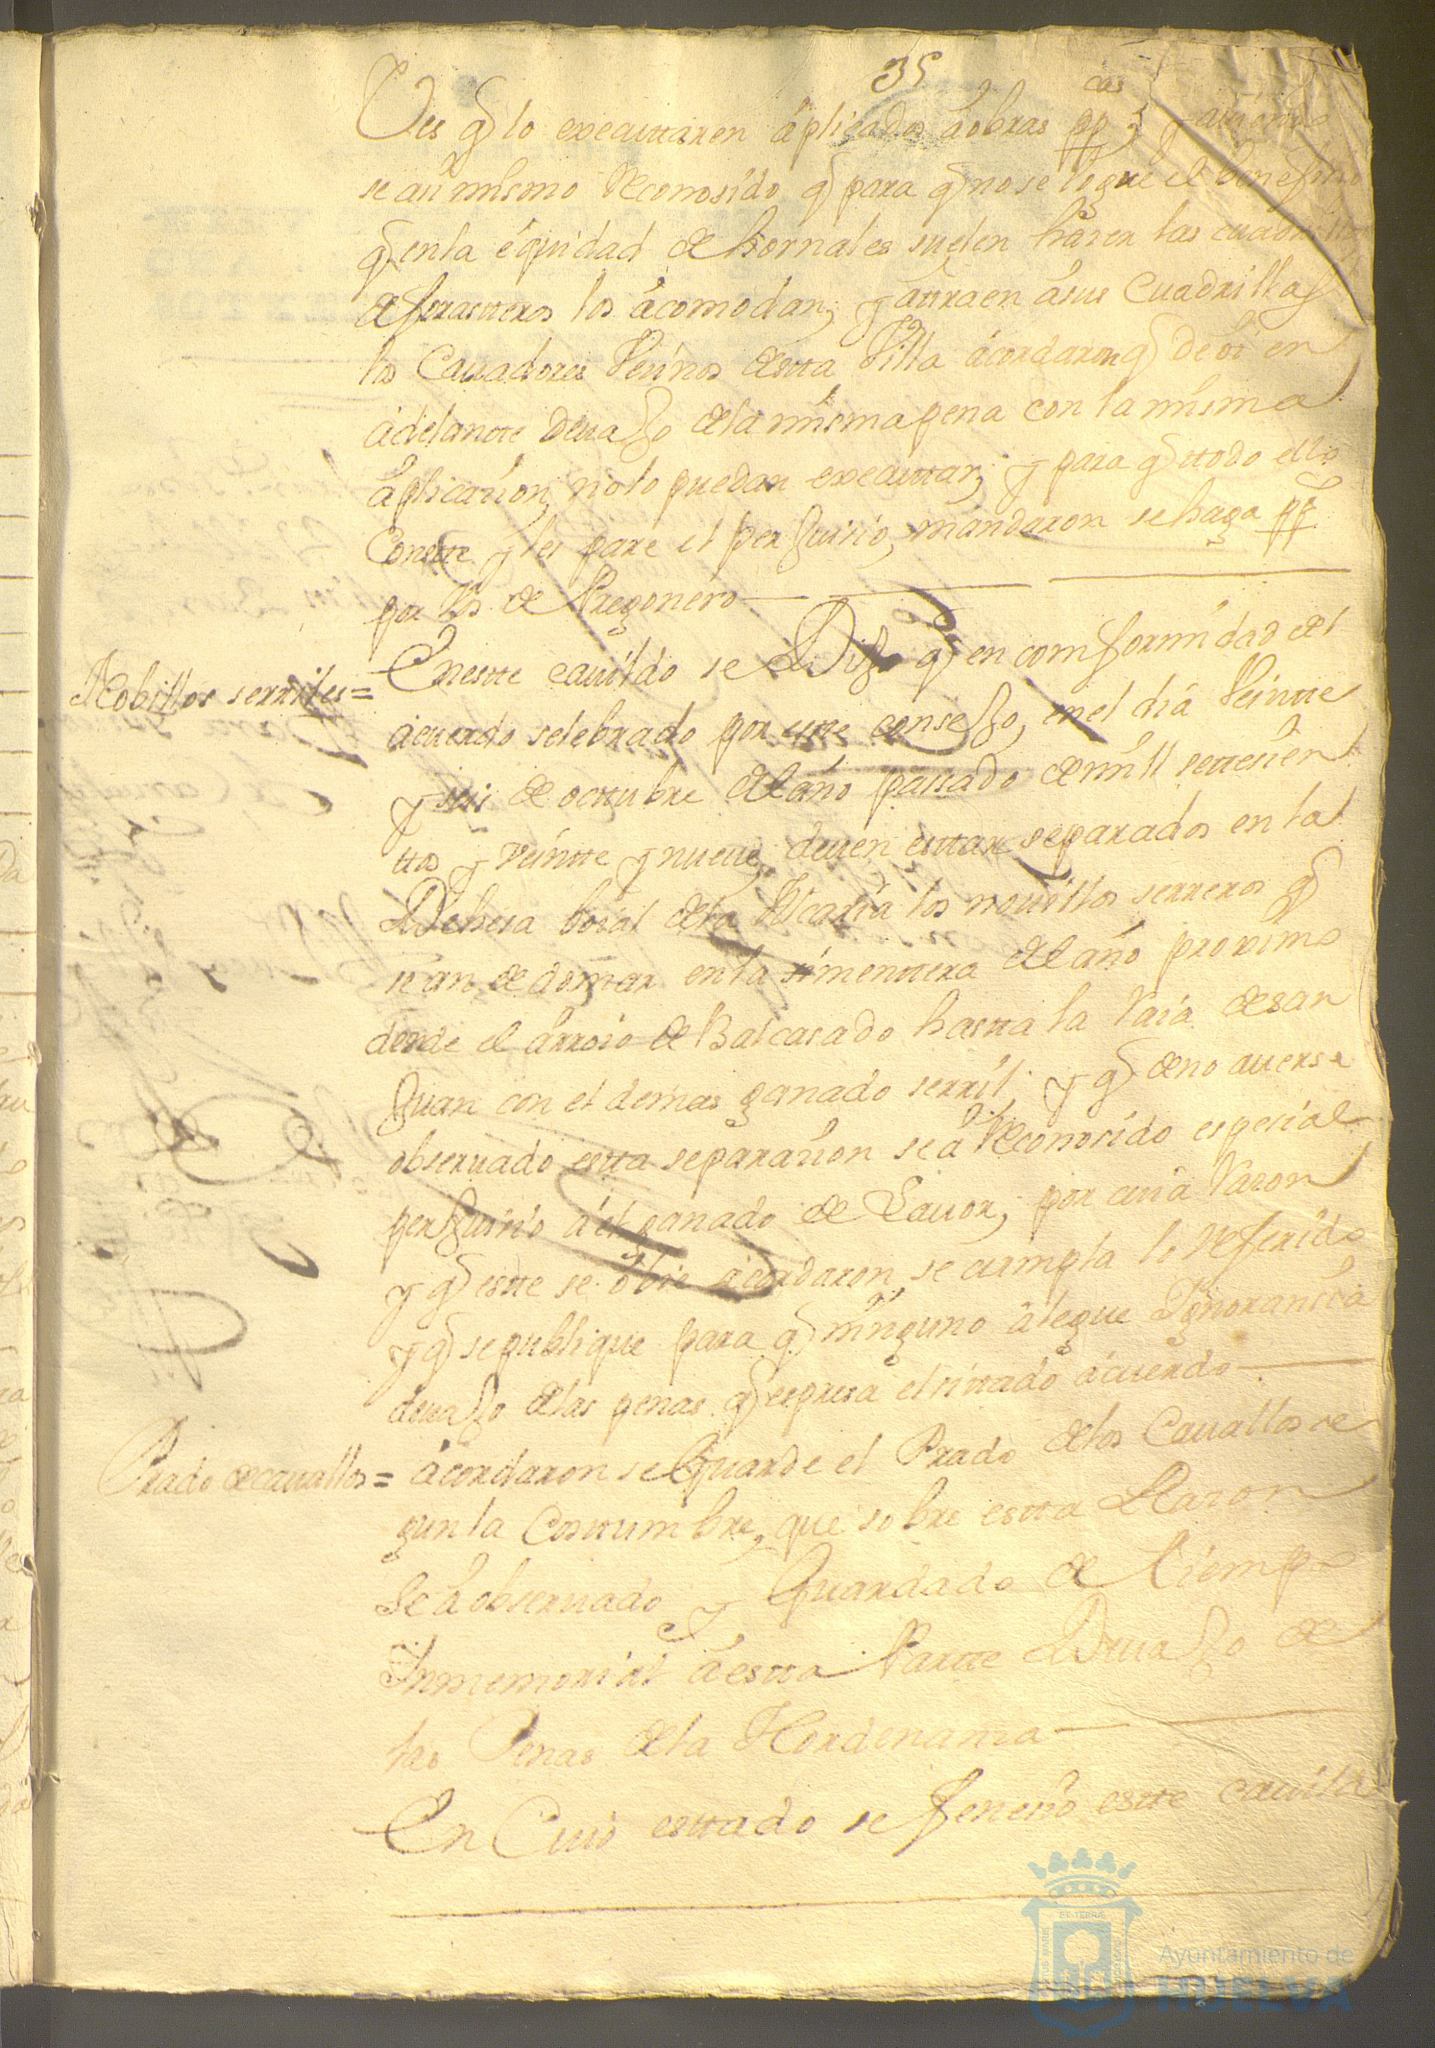 35
Ves q lo executaren áplicados áobras pp.cas y auiendo
se aui mismo Reconosido q para q no se logre el benefisio
q enla équidad de hornales suelen háser las cuadrillas
deforasteros los ácomodan, y átraen ásus Cuadrillas
los Cauadores Vesinos desta Villa ácordaron q de oi en
ádelantte deuajo dela misma pena con la misma
áplicasion, nolo puedan executtar; y para q ttodo ello
Constte y les pare el perjuisio, mandaron se haga pp
por vos de Pregonero
Nobillos serriles=
Enestte cauildo se Dijo q en comformidad del
ácuerdo selebrado por estte consejo, en el dia Veintte
y seis de octtubre del año passado de mill settesien
ttos y veintte y nueue, deuen esttar separados en la
Dehesa boial dela Alcaria los nouillos serreros q
se an de domar en la simenttera del año proximo
desde el árroio de Balcasado hastta la Raia de san
Juan con el demas ganado serril; y q de no auerse
obseruado estta separasion se á Reconosido espesial
perjuisio ál ganado de Lauor, por cuia Razon
y q estte se obie ácordaron, se cumpla lo Referido
y q se publique para q ninguno álegue Ignoransia
deuajo delas penas q espresa el sitado ácuerdo
Prado de cauallos=
ácordaron se Guarde el Prado delos Cauallos se
gun la Costtumbre, que sobre estta Razon
Se á obseruado y Guardado de tiempo
Inmemorial á estta Partte Deuajo de
las Penas dela Hordenansa
En Cuio esttado se fenesio estte cauildo
Ayuntamiento de
HUELVA